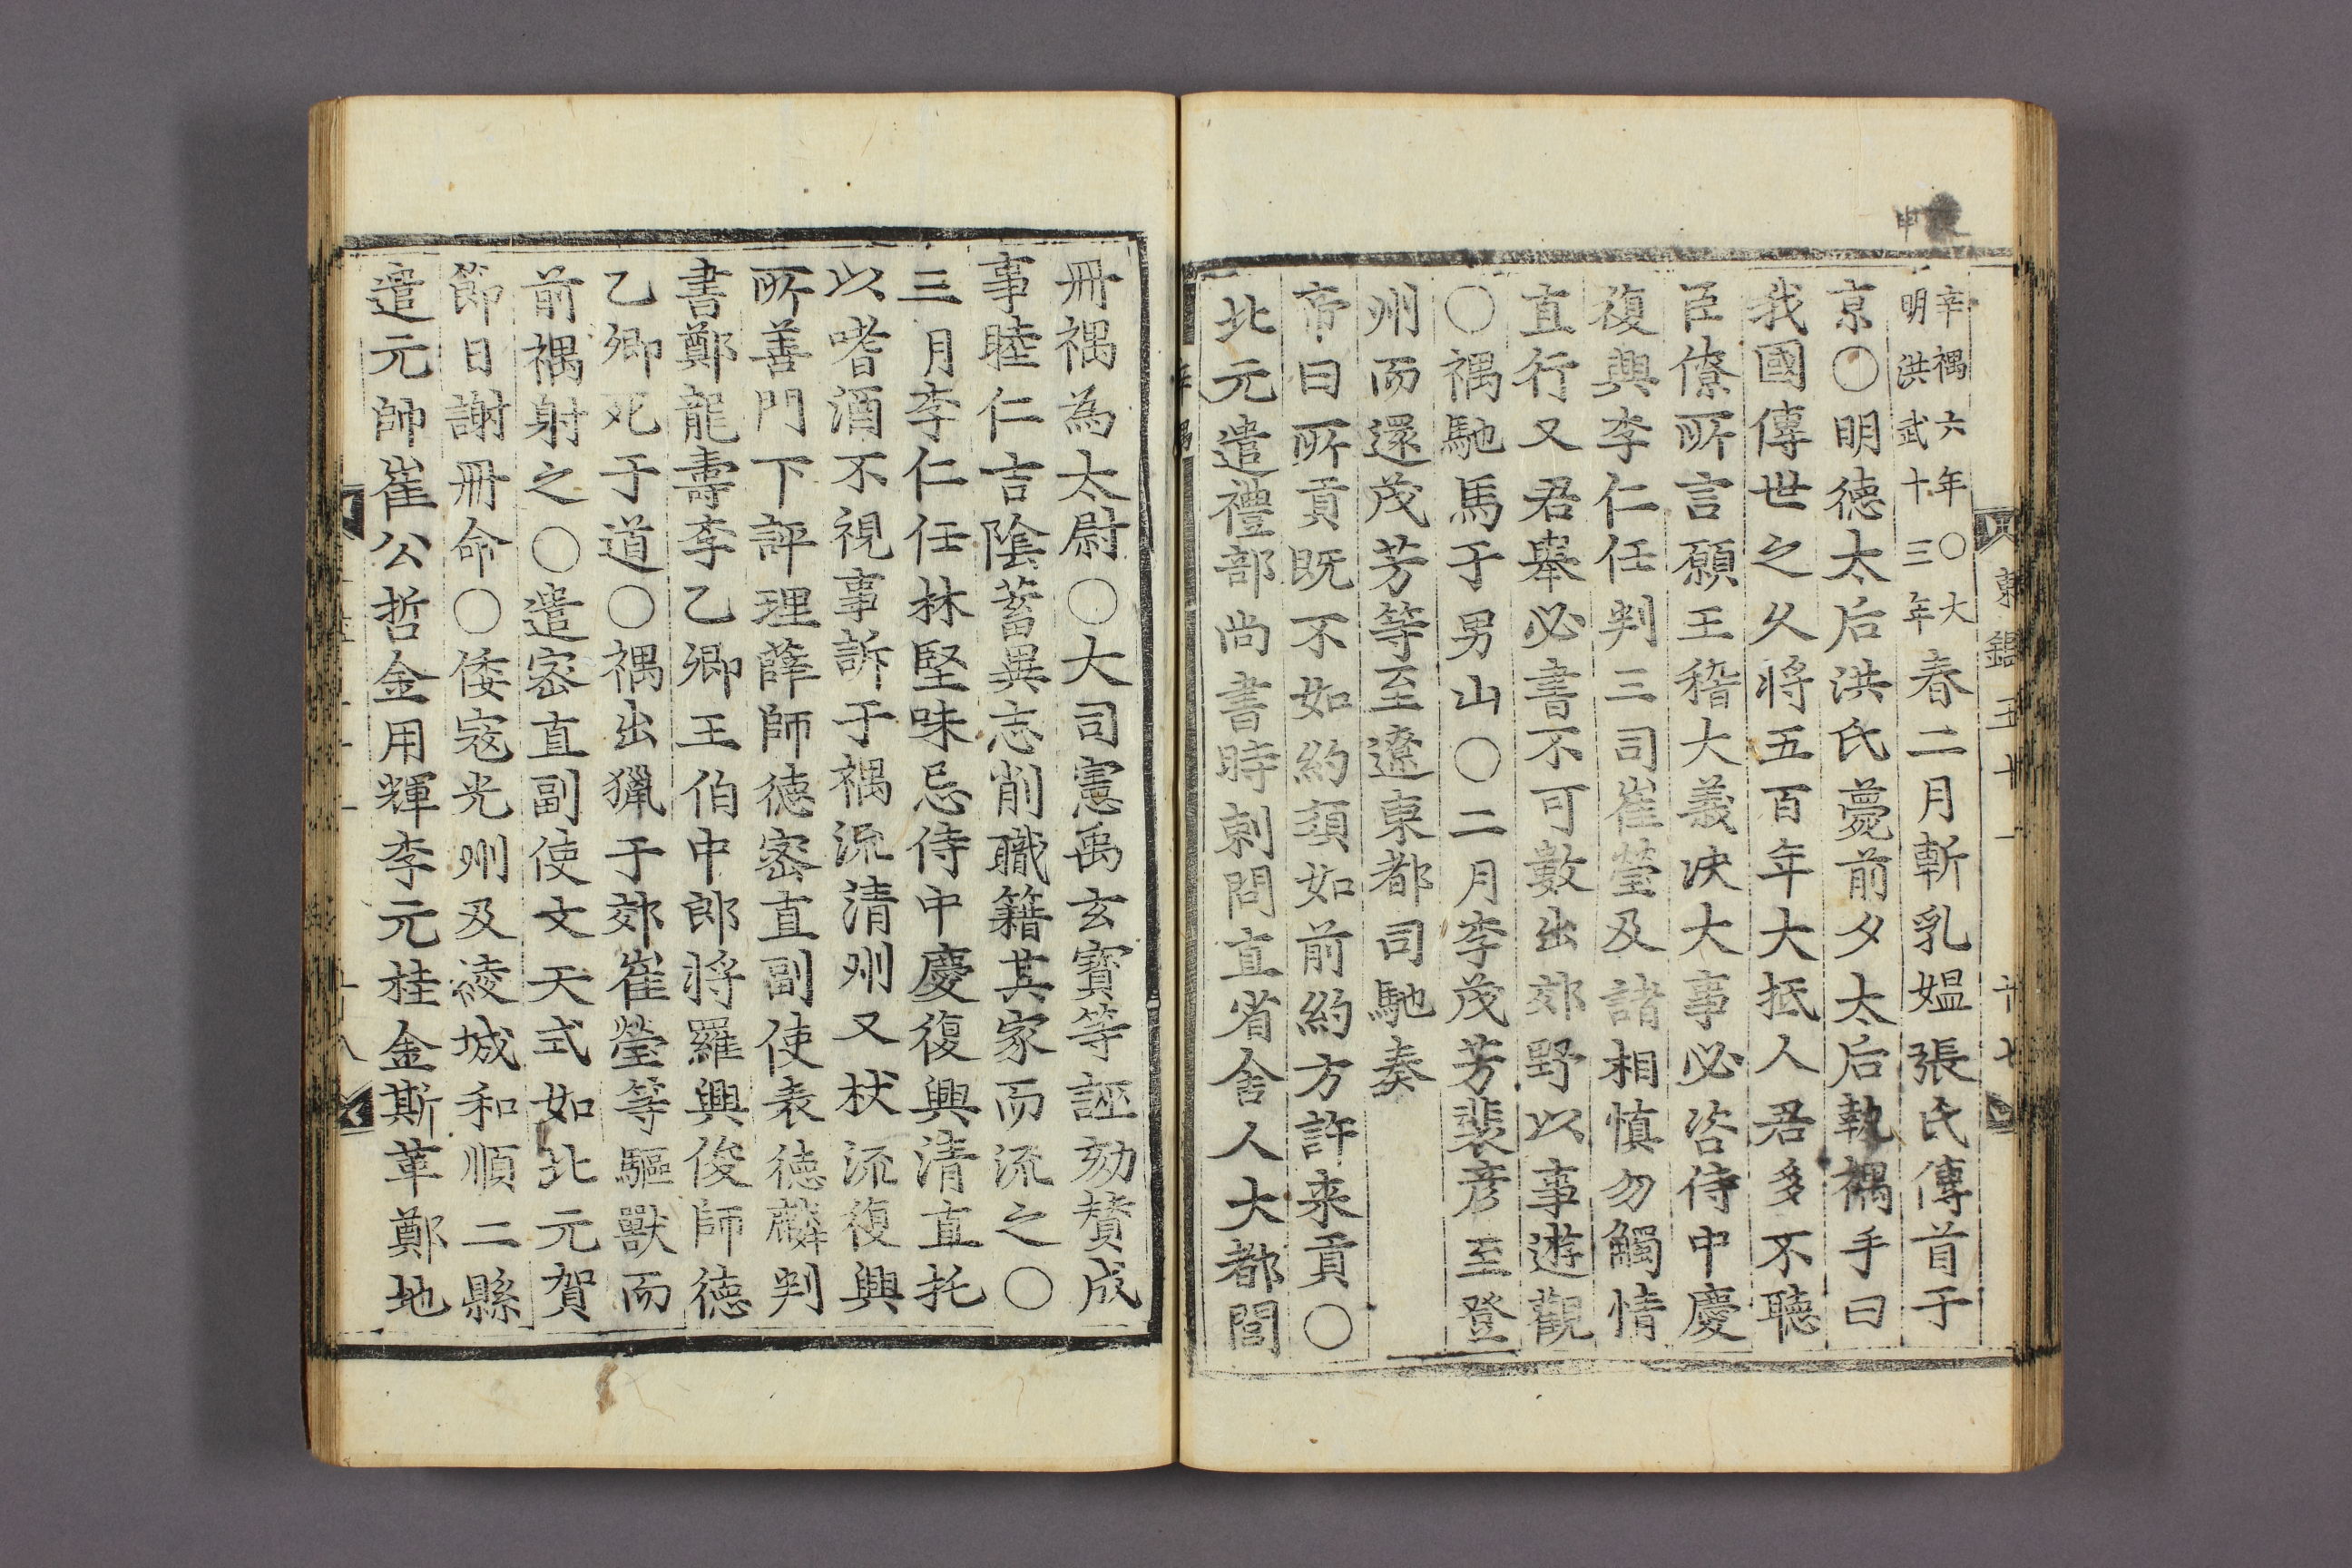 申
辛禑六年○大
明洪武十三年春二月斬乳媼張氏傳首于
京○明德太后洪氏薨前夕太后執禑手曰
我國傳世之久將五百年大抵人君多不聽
臣僚所言願王稽大義决大事必咨侍中慶
復興李仁任判三司崔瑩及諸相慎勿觸情
直行又君舉必書不可數出郊野以事遊觀
○禑馳馬于男山○二月李茂芳裴彦至登
州而還茂芳等至遼東都司馳奏
帝曰所貢既不如約須如前約方許来貢○
北元遣禮部尚書時剌問直省舍人大都閭
冊禑為太尉○大司憲禹玄寶等誣劾賛成
事睦仁吉陰蓄異志削職籍其家而流之○
三月李仁任林堅味忌侍中慶復興清直托
以嗜酒不視事訴于禑流清州又杖流復興
所善門下評理薛師德密直副使表德麟判
書鄭龍壽李乙卿王伯中郎將羅興俊師德
乙卿死于道○禑出獵于郊崔瑩等驅獸而
前禑射之○遣密直副使文天式如北元賀
節日謝冊命○倭寇光州及淩城和順二縣
遣元帥崔公哲金用輝李元桂金斯革鄭地